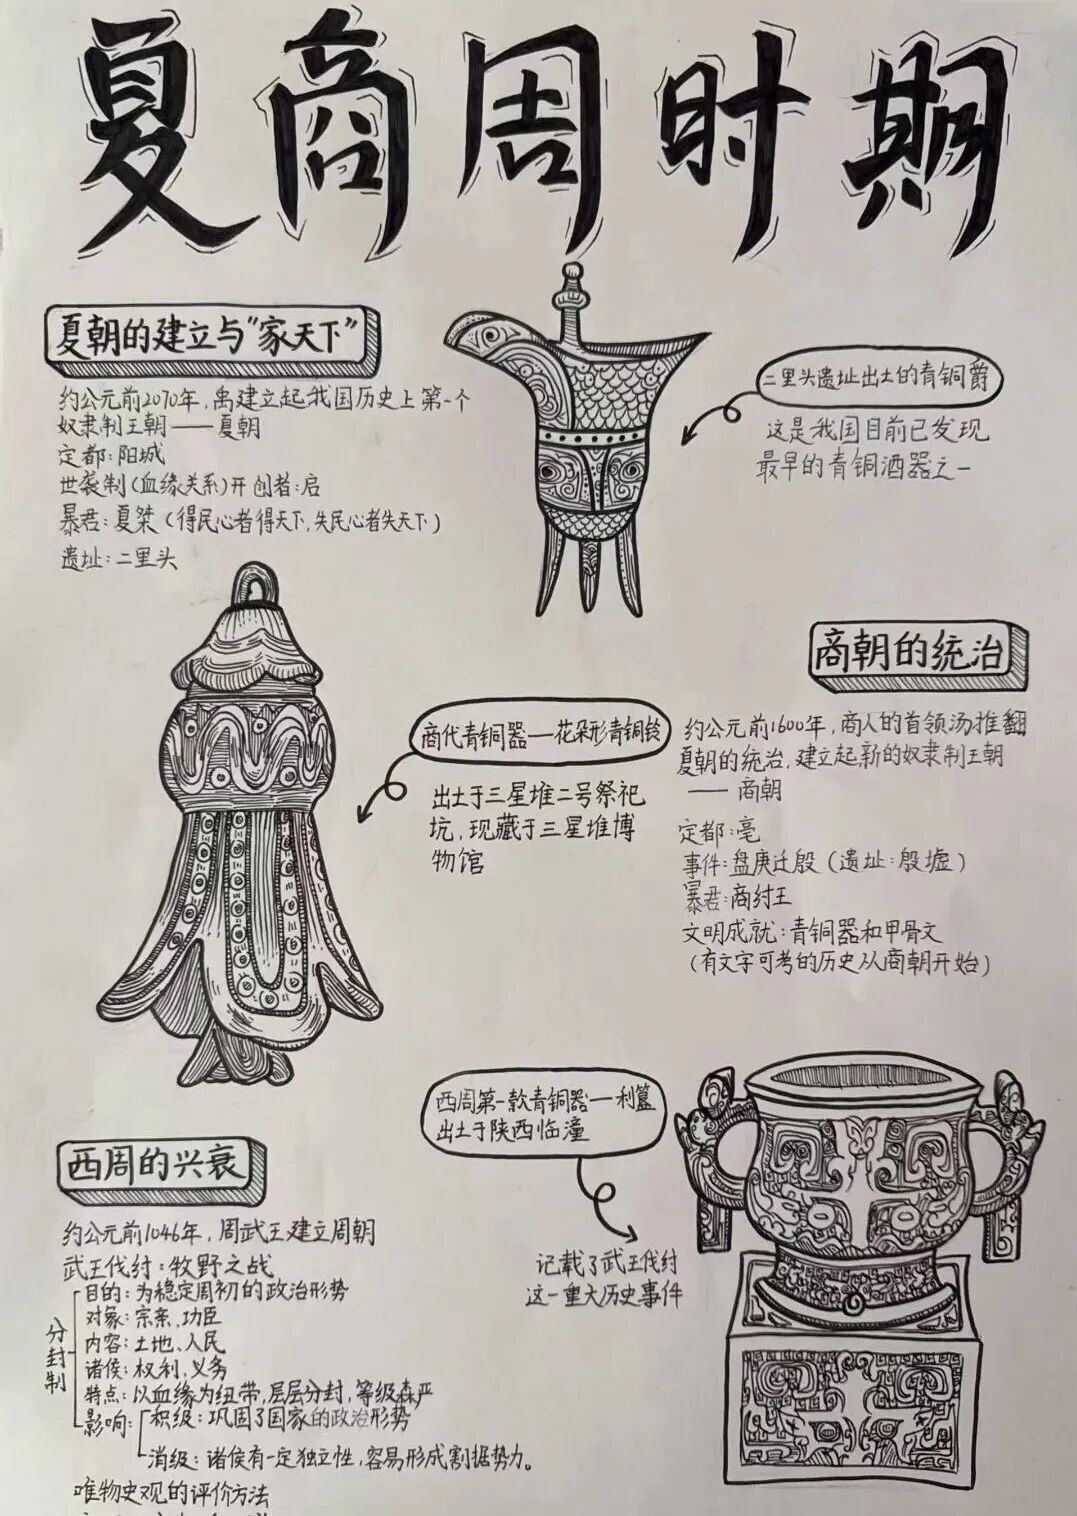 夏商周时期
夏朝的建立与“家天下”
约公元前2070年,禹建立起我国历史上第一个
奴隶制王朝——夏朝
定都:阳城
世袭制(血缘关系)开创者:启
暴君:夏桀(得民心者得天下,失民心者失天下)
遗址:二里头
二里头遗址出土的青铜爵
这是我国目前已发现
最早的青铜酒器之一
商朝的统治
约公元前1600年,商人的首领汤推翻
夏朝的统治,建立起新的奴隶制王朝
——商朝
定都:亳
事件:盘庚迁殷(遗址:殷墟)
暴君:商纣王
文明成就:青铜器和甲骨文
(有文字可考的历史从商朝开始)
商代青铜器—花朵形青铜铃
出土于三星堆二号祭祀
坑,现藏于三星堆博
物馆
西周第一款青铜器—利簋
出土于陕西临潼
记载了武王伐纣
这一重大历史事件
西周的兴衰
约公元前1046年,周武王建立周朝
武王伐纣:牧野之战
分封制
目的:为稳定周初的政治形势
对象:宗亲、功臣
内容:土地、人民
诸侯:权利、义务
特点:以血缘为纽带,层层分封,等级森严
影响:积级:巩固了国家的政治形势
消级:诸侯有一定独立性,容易形成割据势力。
唯物史观的评价方法